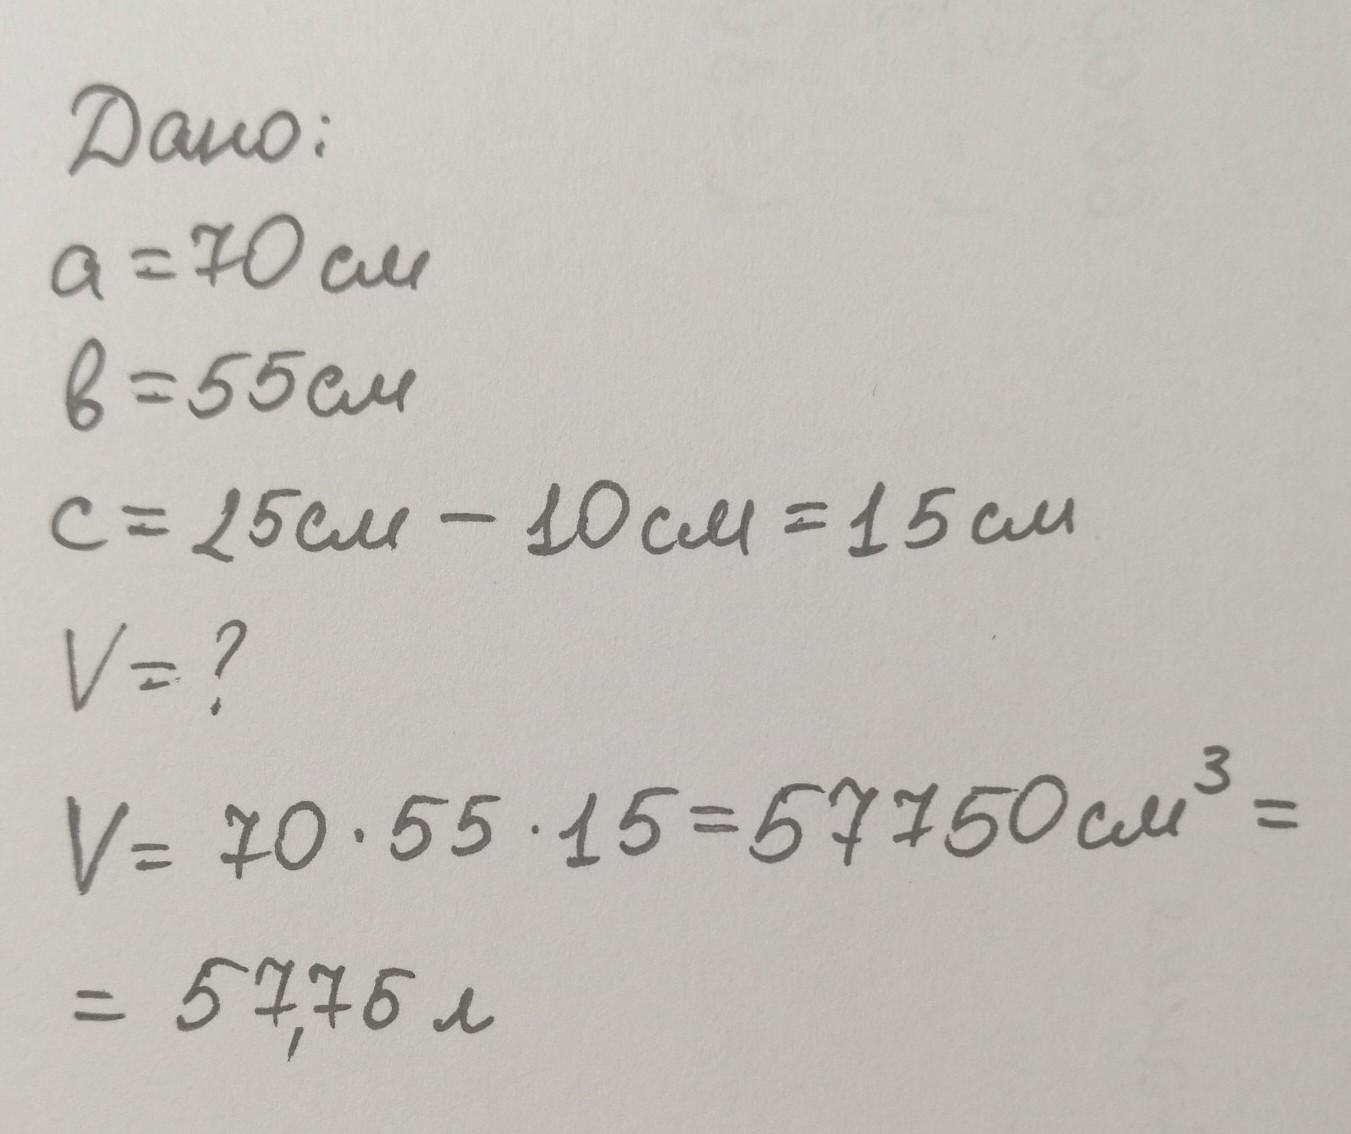 Дано:
a = 70 см
в = 55 см
c = 25 см - 10 см = 15 см
V = ?
V = 70 · 55 · 15 = 57750 см³ =
= 57,75 л